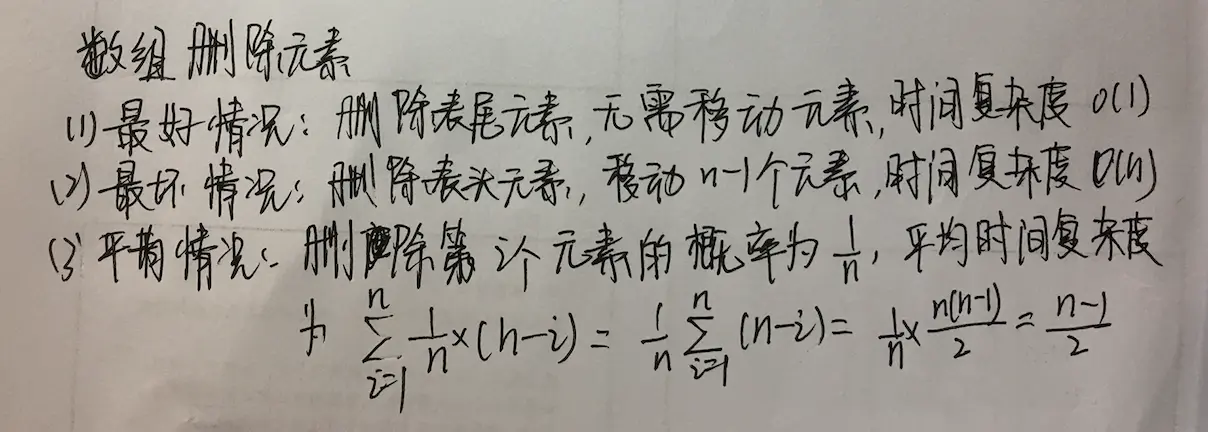 数组删除元素
(1) 最好情况: 删除表尾元素, 无需移动元素, 时间复杂度 O(1)
(2) 最坏情况: 删除表头元素, 移动 n-1个元素, 时间复杂度 O(n)
(3) 平均情况: 删除第 i个元素的概率为 1/n, 平均时间复杂度
为 ∑_{i=1}^{n} 1/n × (n-i) = 1/n ∑_{i=1}^{n} (n-i) = 1/n × n(n-1)/2 = (n-1)/2